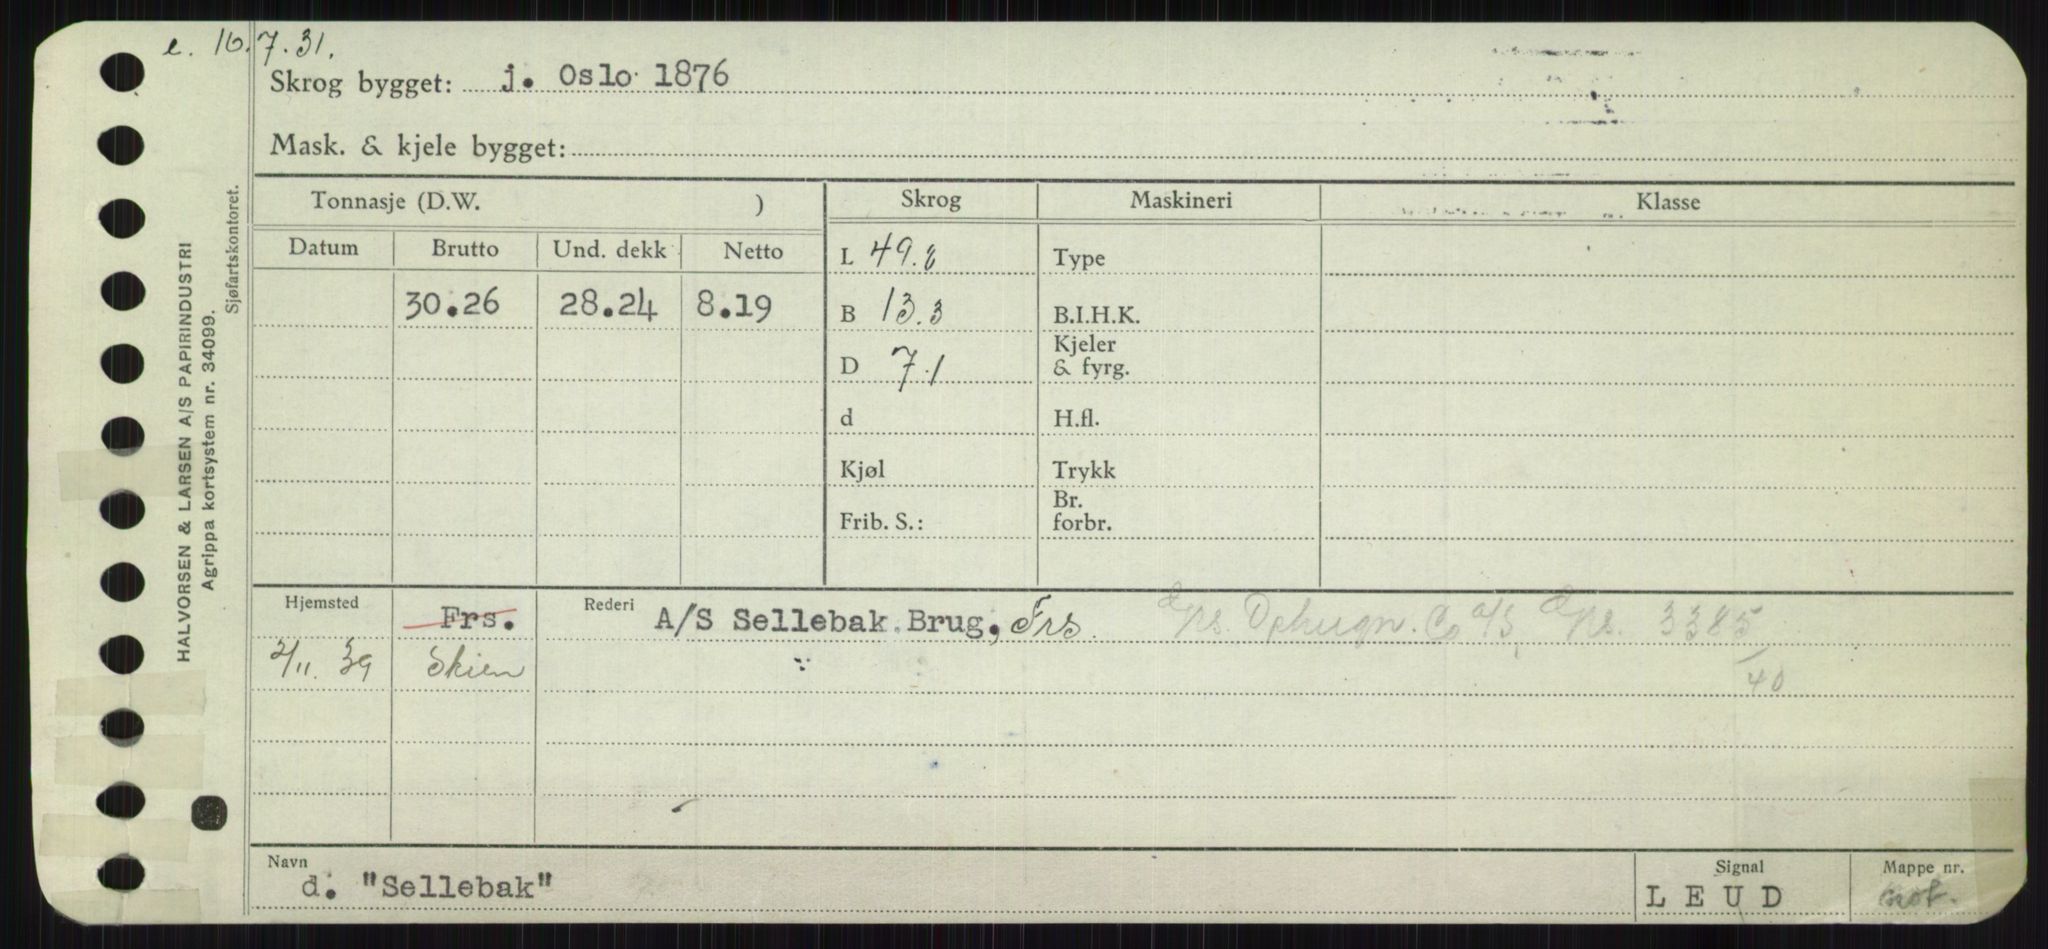 e. 16.7.31.
Skrog bygget: j. Oslo 1876
Mask. & kjele bygget:
HALVORSEN & LARSEN A/S PAPIRINDUSTRI
Agrippa kortsystem nr. 34099.
Sjøfartskontoret.
Tonnasje (D.W. ) Skrog Maskineri Klasse
Datum Brutto Und. dekk Netto L 49.8 Type
30.26 28.24 8.19 B 13.3 B.I.H.K.
D 7.1 Kjeler & fyrg.
d H.fl.
Kjøl Trykk
Frib. S.: Br. forbr.
Hjemsted Frs. Rederi A/S Sellebak Brug, Frs. Co a/S 3385
2/11. 39 Skien 40
Navn Signal Mappe nr.
d. "Sellebak" LEUD mot.